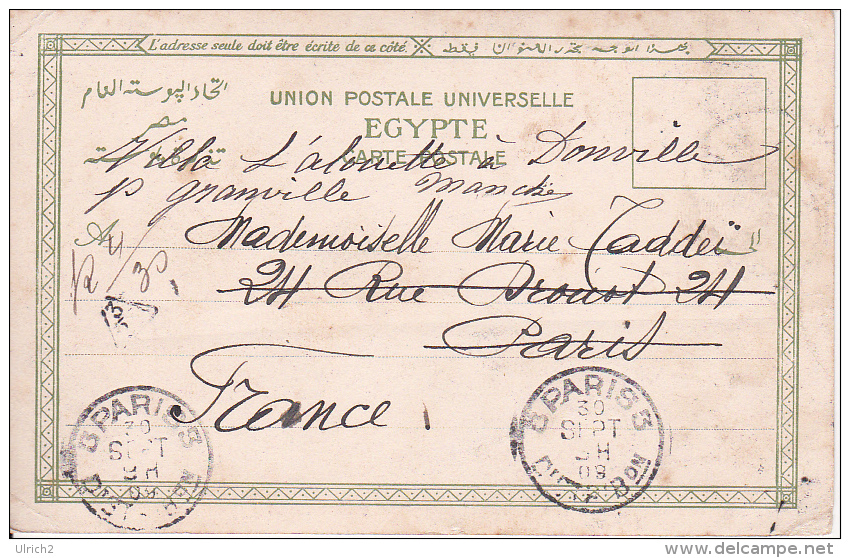 L'adresse seule doit être écrite de ce côté.
اتحاد البوسته العام
UNION POSTALE UNIVERSELLE
مصر
EGYPTE
CARTE POSTALE
Villa L'alouette à Donville
p Granville Manche
A
Mademoiselle Marie Taddeï
24 Rue Drouot 24
Paris
France
8 PARIS 3
30
SEPT
9 H
8 PARIS 3
30
SEPT
7 H
09
DISTRIBON
Ulrich2
http://www.delcampe.net